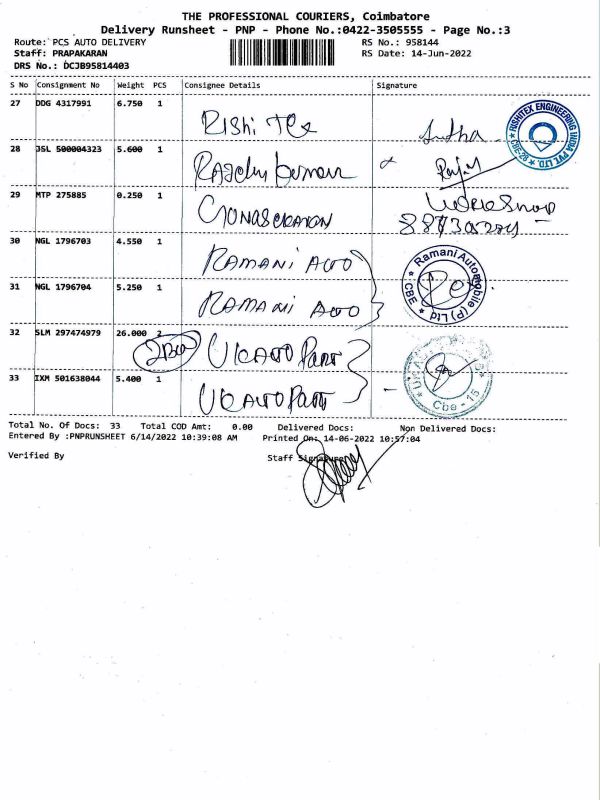 THE PROFESSIONAL COURIERS, Coimbatore
Delivery Runsheet - PNP - Phone No.:0422-3505555 - Page No.:3
Route: PCS AUTO DELIVERY RS No.: 958144
Staff: PRAPAKARAN RS Date: 14-Jun-2022
DRS No.: DCJB95814403
S No Consignment No Weight PCS Consignee Details Signature
27 DDG 4317991 6.750 1 Rishi Tex
RISHITEX ENGINEERING INDIA PVT. LTD. CBE-28
28 JSL 500004323 5.600 1
29 MTP 275885 0.250 1 GUNASEKARAN
30 NGL 1796703 4.550 1 RAMANI AUTO
31 NGL 1796704 5.250 1 RAMANI AUTO
Ramani Automobile (P) Ltd CBE
32 SLM 297474979 26.000 2 UK AUTO Part
33 IXM 501638044 5.400 1 UK AUTO Part
Cbe - 15
Total No. Of Docs: 33 Total COD Amt: 0.00 Delivered Docs: Non Delivered Docs:
Entered By :PNPRUNSHEET 6/14/2022 10:39:08 AM Printed On: 14-06-2022 10:57:04
Verified By Staff Signature